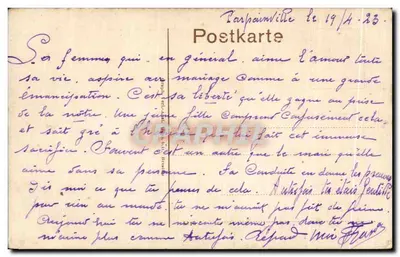 le 19/4-23
Postkarte
femme qui en général, aime l'amour toute
sa vie, aspire au mariage comme à une grande
émancipation. C'est sa liberté qu'elle gagne au prise
de la nôtre. Une jeune fille comprend confusément cela
et sait gré à fait immense
sacrifice. Souvent c'est un autre que le mari qu'elle
aime dans sa personne. Sa Conduite en donne les preuves
Dis moi ce que tu penses de cela. Autrefois tu étais gentille
pour rien au monde, tu ne m'aurais fait de peine.
Aujourd'hui tu ne m'écoute même pas, donc tu
m'aime plus comme Autrefois.
CPAPHIL